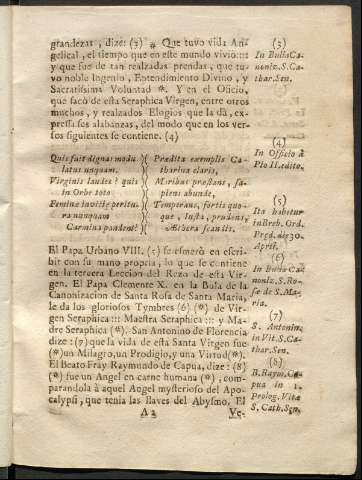 grandezas, dize: (3) * Que tuvo vida An-
gelical, el tiempo que en este mundo vivio:::
y que fue de tan realzadas prendas, que tu-
vo noble Ingenio, Entendimiento Divino, y
Sacratissima Voluntad *. Y en el Oficio,
que sacò de esta Seraphica Virgen, entre otros
muchos, y realzados Elogios que la dà, ex-
pressa ses alabanzas, del modo que en los ver-
sos siguientes se contiene. (4)
Quis fuit dignas modu
latus unquam.
Virginis laudes? quis
in Orbe toto
Feminæ invictæ peritu-
ra nunquam
Carmina pandent?
Prædita exemplis Ca-
tharina claris,
Moribus præstans, sa-
piens abunde,
Temperans, fortis quo-
que, Iusta, prudens,
Æthera scandit.
El Papa Urbano VIII. (5) se esmerò en escri-
bir con su mano propria, lo que se contiene
en la tercera Leccion del Rezo de esta Vir-
gen. El Papa Clemente X. en la Bula de la
Canonizacion de Santa Rosa de Santa Maria,
le da los gloriosos Tymbres (6) (*) de Vir-
gen Seraphica ::: Maestra Seraphica ::: y Ma-
dre Seraphica (*). San Antonino de Florencia
dize: (7) que la vida de esta Santa Virgen fue
(*) un Milagro, un Prodigio, y una Virtud (*).
El Beato Fray Raymundo de Capua, dize: (8)
(*) fue un Angel en carne humana (*), com-
parandola à aquel Angel mysterioso del Apo-
calypsi, que tenia las llaves del Abysmo. El
A 2
Ve-
(3)
In Bulla Ca-
noniz. S. Ca-
thar. Sen.
(4)
In Officio à
Pio II. edito.
(5)
Ita habetur
in Brev. Ord.
Præd. die 30.
April.
(6)
In Bulla Ca-
noniz. S. Ro-
sæ de S. Ma-
ria.
(7)
S. Antonin.
in Vit. S. Ca-
thar. Sen.
(8)
B. Raym. Ca-
pua in 1.
Prolog. Vitæ
S. Cath. Sen.